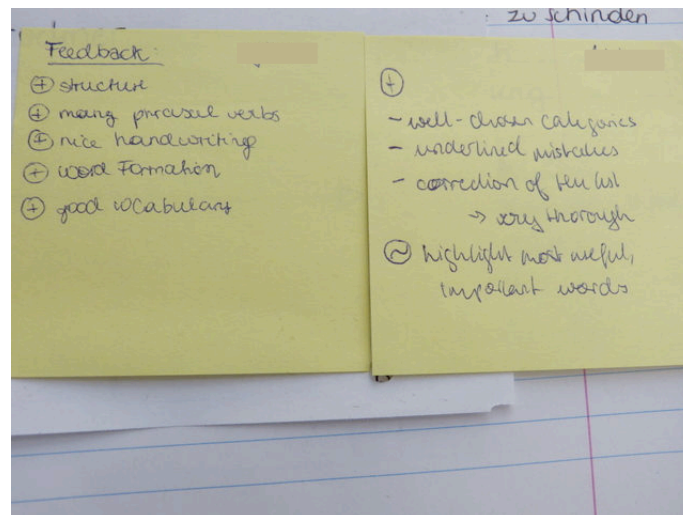 zu schinden
Feedback:
⊕ structure
⊕ many phrasal verbs
⊕ nice handwriting
⊕ word Formation
⊕ good vocabulary
⊕
- well-chosen categories
- underlined mistakes
- correction of the list
→ very thorough
~ highlight most useful,
important words